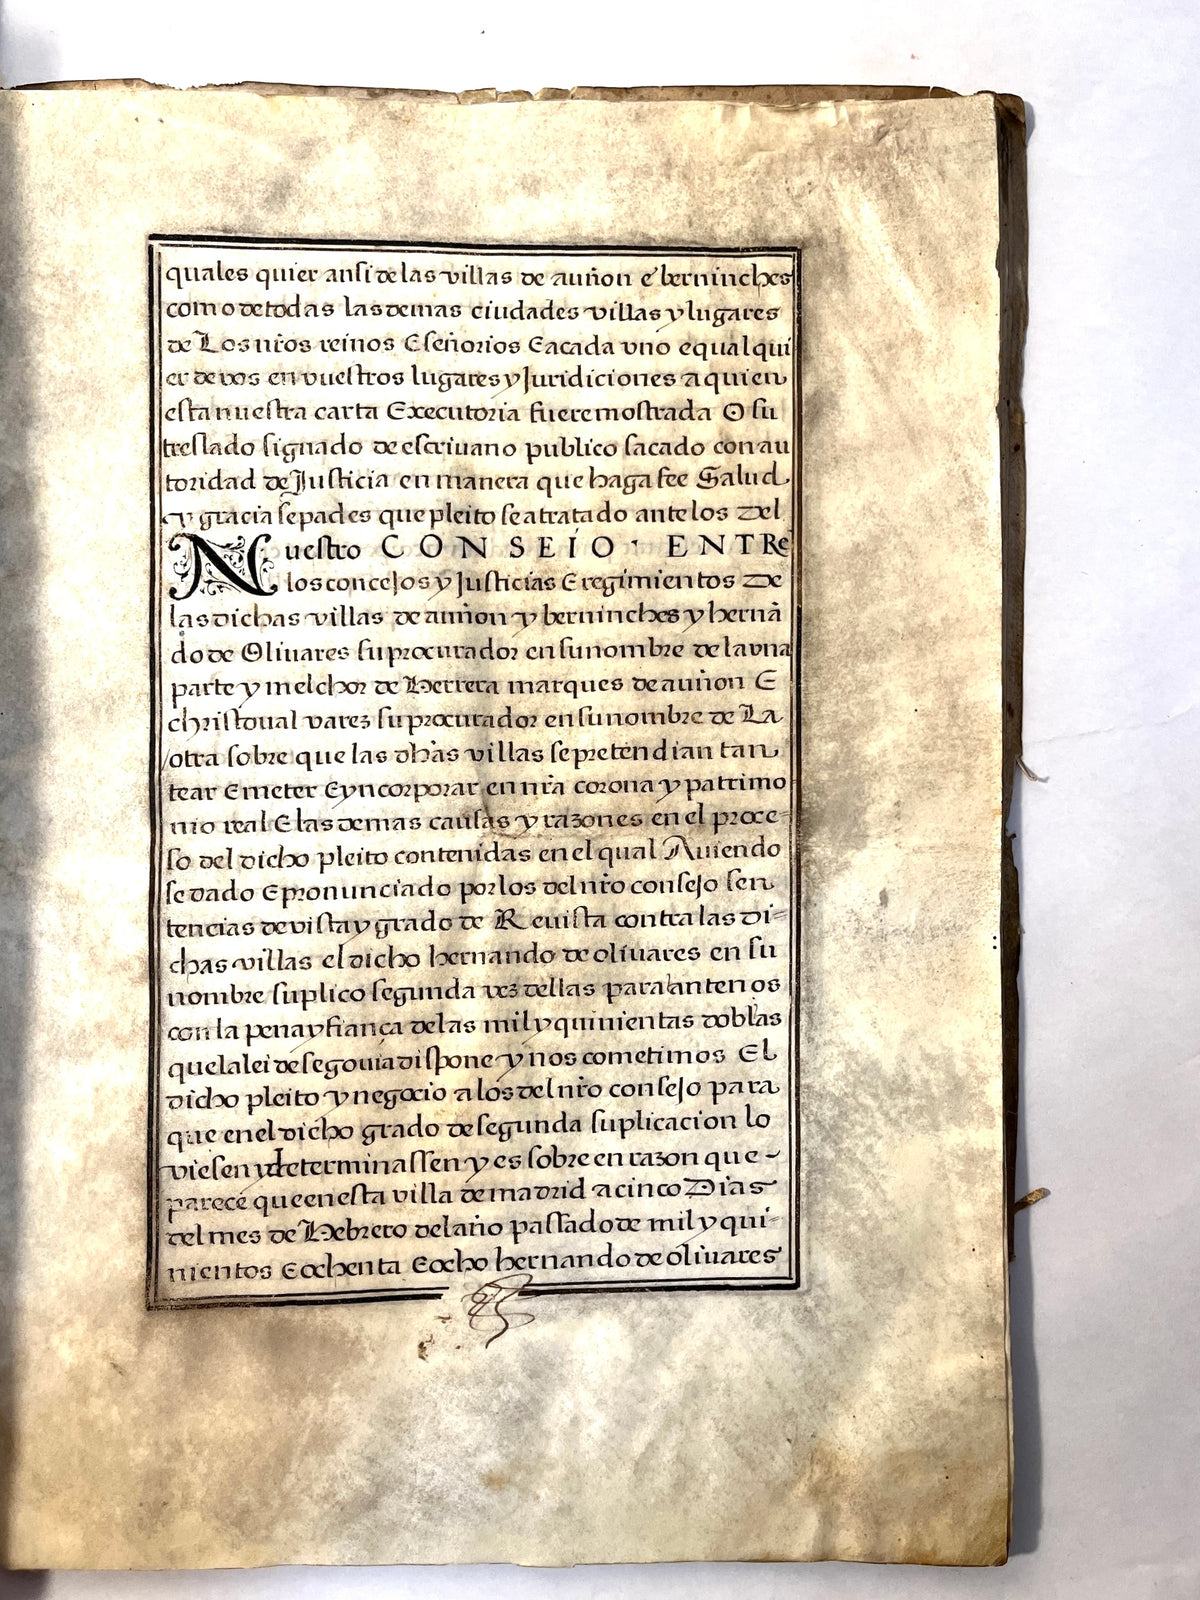 quales quier ansi de las villas de auñon e berninches
como de todas las demas ciudades villas y lugares
de Los nr̃os reinos E señorios E a cada vno e qual qui
er de vos en vuestros lugares y Juridiciones a quien
esta nuestra carta Executoria fuere mostrada O su
treslado signado de escriuano publico sacado con au
toridad de Justicia en manera que haga fee Salud
y gracia sepades que pleito se a tratado ante los Del
Nuestro CONSEIO · ENTRE
los concejos y Justicias E regimientos De
las dichas villas de auñon y berninches y hernã
do de Oliuares su procurador en su nombre de la vna
parte y melchor de Herrera marques de auñon E
christoual varez su procurador en su nombre de La
otra sobre que las dhas villas se pretendian tan
tear E meter E yncorporar en nr̃a corona y patrimo
nio real E las demas causas y razones en el proce-
so del dicho pleito contenidas en el qual Auiendo
se dado E pronunciado por los del nr̃o consejo sen
tencias de vista y grado de Reuista contra las di=
chas villas el dicho hernando de oliuares en su
nombre suplico segunda vez dellas para ante nos
con la pena y fiança de las mil y quinientas doblas
que la lei de segouia dispone y nos cometimos El
dicho pleito y negocio a los del nr̃o consejo para
que en el dicho grado de segunda suplicacion lo
viesen y determinassen y es sobre en razon que -
parece que en esta villa de madrid a cinco Dias
del mes de Hebrero del año passado de mil y qui-
nientos E ochenta E ocho hernando de oliuares